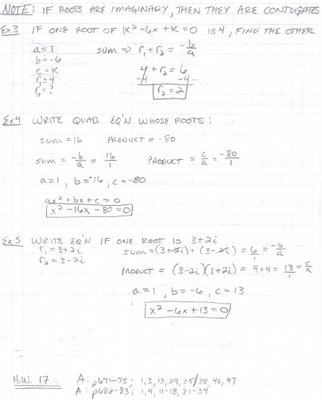 NOTE: IF ROOTS ARE IMAGINARY, THEN THEY ARE CONJUGATES
Ex3 IF ONE ROOT OF 1x²-6x+K=0 IS 4, FIND THE OTHER
a=1 sum ⇒ r₁+r₂ = -b/a
b=-6
c=K 4+r₂=6
r₁=4 -4 -4
r₂=? r₂=2
Ex4 WRITE QUAD EQ'N WHOSE ROOTS:
sum=16 PRODUCT=-80
sum = -b/a = 16/1 PRODUCT = c/a = -80/1
a=1, b=-16, c=-80
ax²+bx+c=0
x²-16x-80=0
Ex5 WRITE EQ'N IF ONE ROOT IS 3+2i
r₁=3+2i sum=(3+2i)+(3-2i)=6/1=-b/a
r₂=3-2i
PRODUCT=(3-2i)(3+2i)=9+4=13/1=c/a
a=1, b=-6, c=13
x²-6x+13=0
H.W. 17: A: p671-75; 1,3,13,29,35/38,46,47
A: p682-83; 1,4,11-18,31-34